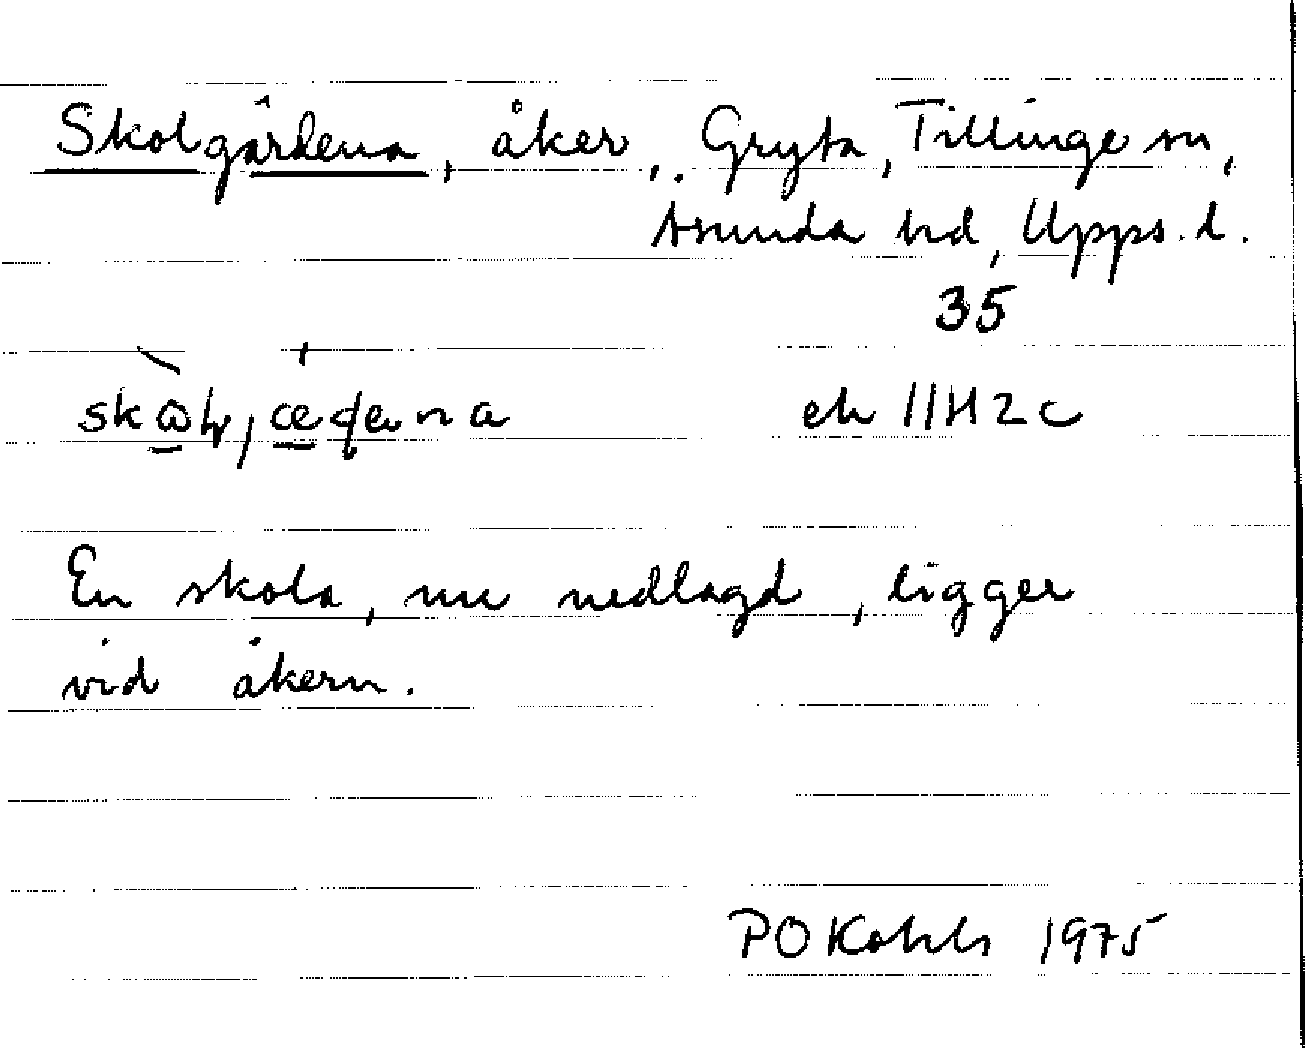 Skolgärdena, åker, Gryta, Tillinge sn,
Åsunda hd, Upps. l.
35
ek 11H2c
En skola, nu nedlagd, ligger
vid åkern.
PO Kohls 1975